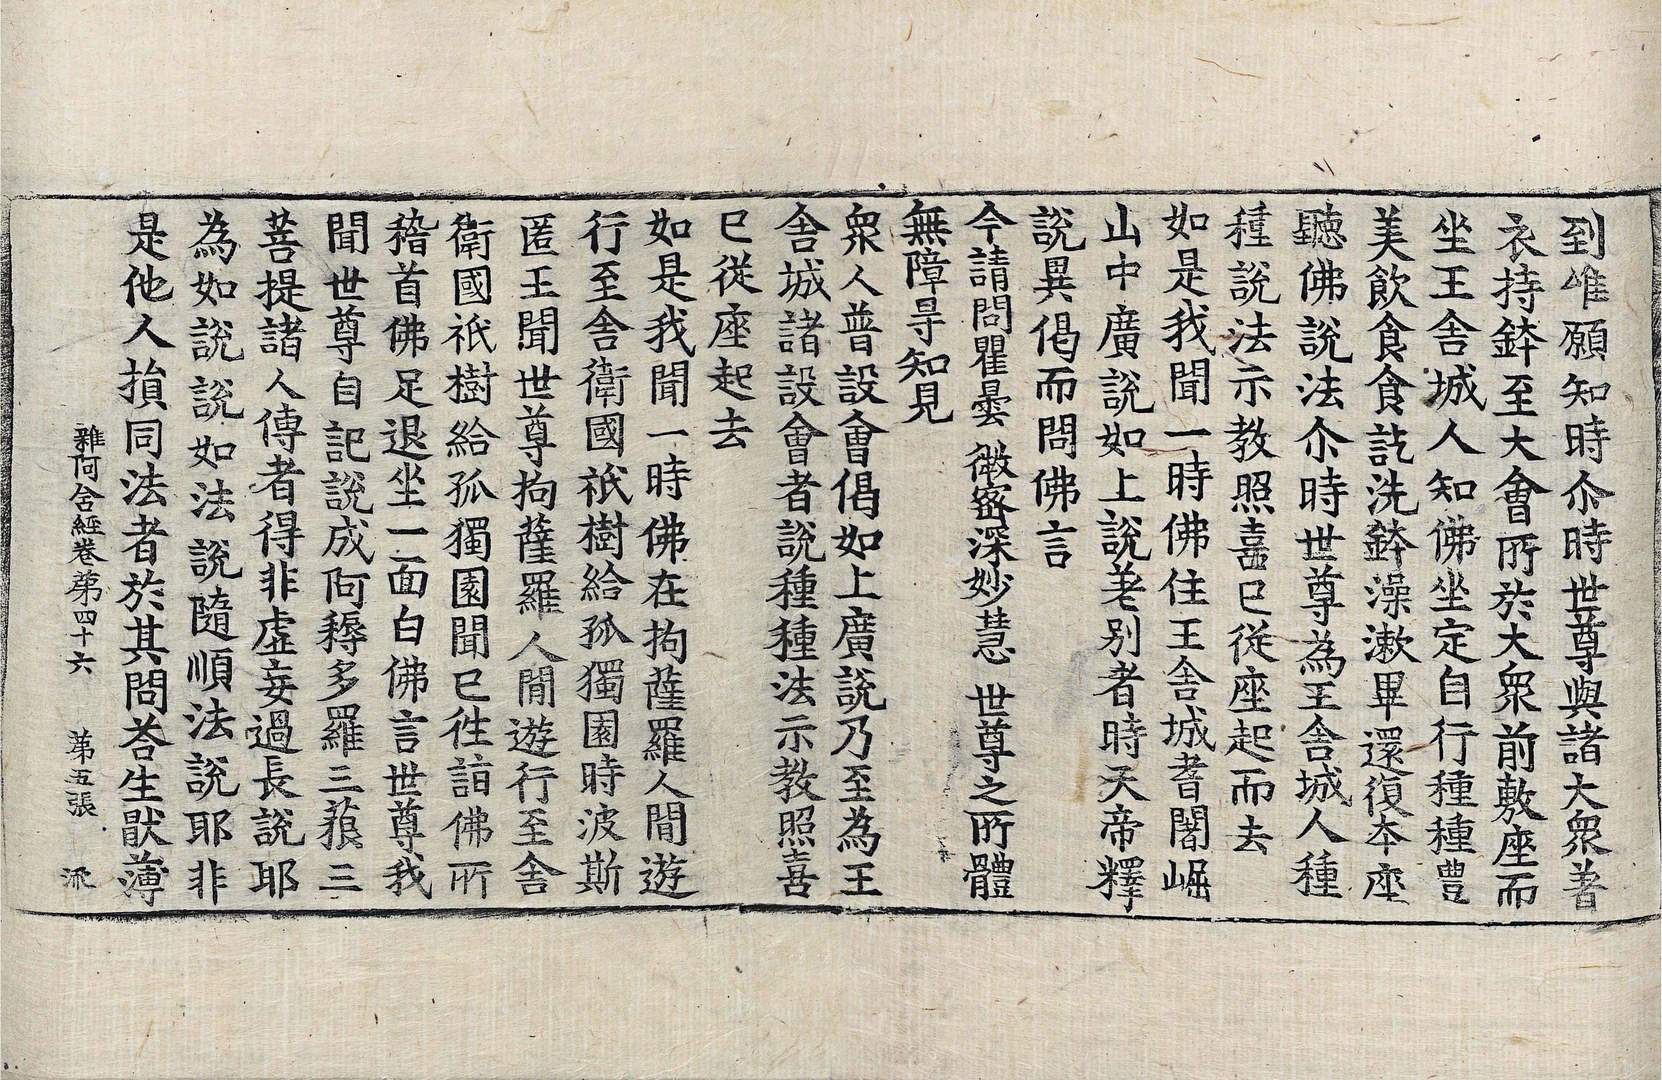 到唯願知時尒時世尊與諸大衆著
衣持鉢至大會所於大衆前敷座而
坐王舍城人知佛坐定自行種種豊
美飲食食訖洗鉢澡漱畢還復本座
聽佛說法尒時世尊為王舍城人種
種說法示教照喜已從座起而去
如是我聞一時佛住王舍城耆闍崛
山中廣說如上說差別者時天帝釋
說異偈而問佛言
今請問瞿曇 微密深妙慧 世尊之所體
無障㝵知見
衆人普設會偈如上廣說乃至為王
舍城諸設會者說種種法示教照喜
已從座起去
如是我聞一時佛在拘薩羅人間遊
行至舍衛國祇樹給孤獨園時波斯
匿王聞世尊拘薩羅人間遊行至舍
衛國祇樹給孤獨園聞已往詣佛所
稽首佛足退坐一面白佛言世尊我
聞世尊自記說成阿耨多羅三藐三
菩提諸人傳者得非虛妄過長說耶
為如說說如法說隨順法說耶非
是他人損同法者於其問荅生猒薄
雜阿含經卷第四十六 第五張 派